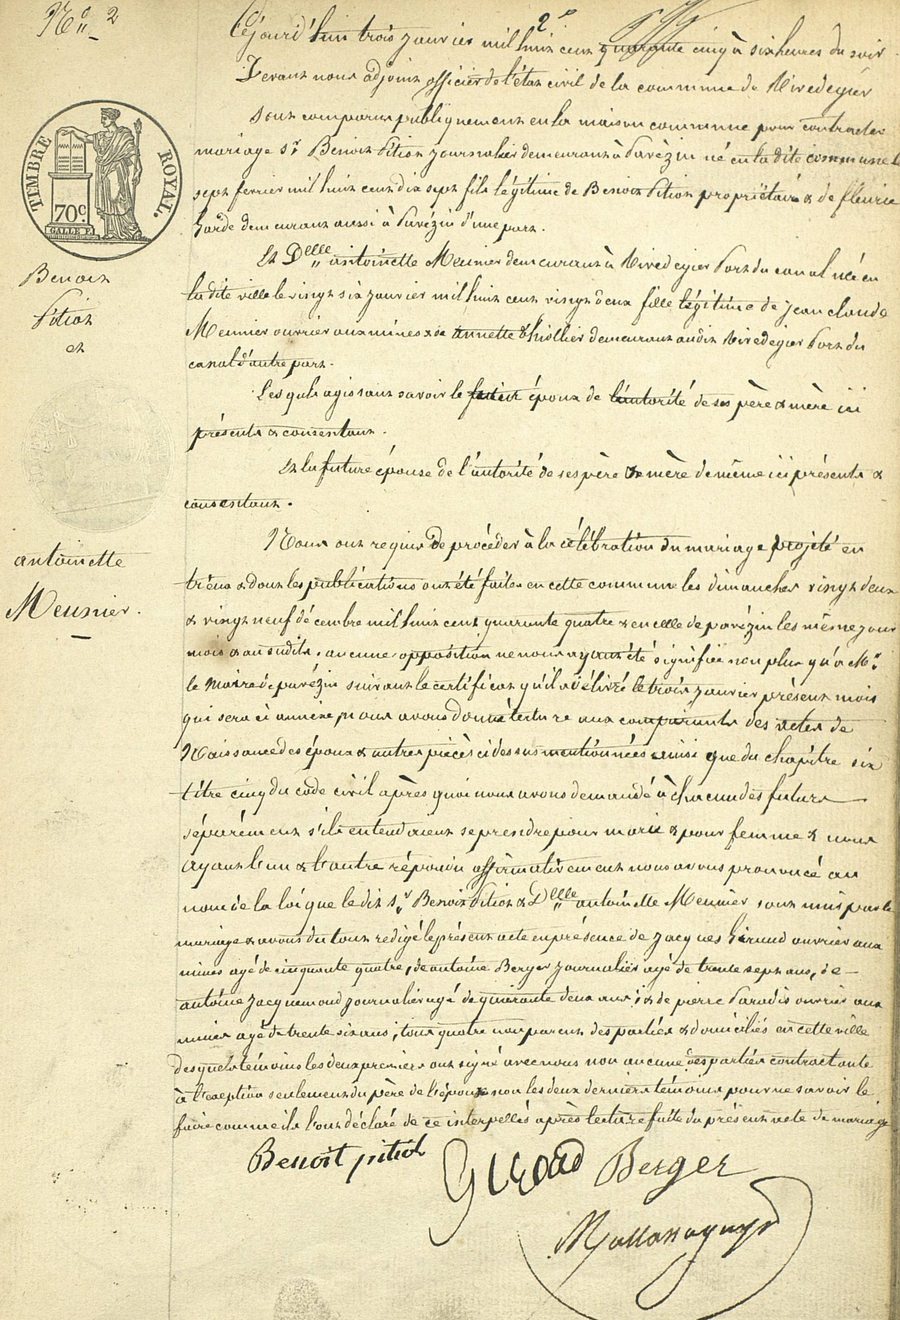 N° 2
2°
Cejourd'hui trois janvier mil huit cent quarante cinq à six heures du soir
Devant nous adjoint officier de l'état civil de la commune de Rivedegier
Sont comparus publiquement en la maison commune pour contracter
mariage Sr Benoit Pition journalier demeurant à Pavézin né en la dite commune le
sept fevrier mil huit cent dix sept fils légitime de Benoit Pition propriétaire & de fleurie
Jarde demeurant aussi à Pavézin d'une part.
TIMBRE ROYAL.
70c
GALLE F.
Benoit
Pition
et
antoinette
Meunier.
Et Delle antoinette Meunier demeurant à Rivedegier Port du canal née en
la dite ville le vingt six janvier mil huit cent vingt deux fille légitime de jean claude
Meunier ouvrier aux mines & de annette Thiollier demeurant audit Rivedegier Port du
canal d'autre part.
Lesquels agissant savoir le futur époux de l'autorité de ses père & mère ici
présents & consentant.
Et la future épouse de l'autorité de ses père & mère de même ici présents &
consentant.
Nous ont requis de procéder à la célébration du mariage projeté en
tr'eux & dont les publications ont été faites en cette commune les dimanches vingt deux
& vingt neuf décembre mil huit cent quarante quatre & en celle de pavézin les même jour
mois & an susdits. aucune opposition ne nous ayant été signifiée non plus qu'à Mr
le Maire de pavézin suivant le certificat qu'il a délivré le trois janvier présent mois
qui sera ci annéxé, nous avons donné lecture aux comparants des actes de
Naissance des époux & autres pièces ci dessus mentionnées ainsi que du chapitre six
titre cinq du code civil après quoi nous avons demandé à chacun des futurs
séparément s'ils entendaient se prendre pour mari & pour femme & nous
ayant l'un & l'autre répondu affirmativement nous avons prononcé au
nom de la loi que le dit Sr Benoit Pition & Delle antoinette Meunier sont unis par le
mariage & avons du tout redigé le présent acte en présence de Jacques Giraud ouvrier aux
mines agé de cinquante quatre, de antoine Berger journalier agé de trente sept ans, de
antoine Jacquemond journalier agé de quarante deux ans, & de pierre Paradis ouvrier aux
mines agé de trente six ans; tous quatre non parent des parties & domiciliés en cette ville
desquels témoins les deux premiers ont signé avec nous non aucune des parties contractante
à l'exeption seulement du père de l'époux non les deux derniers témoins pour ne savoir le
faire comme ils l'ont déclaré de ce interpellés après lecture faite du présent acte de mariage
Benoit pition
Giraud Berger